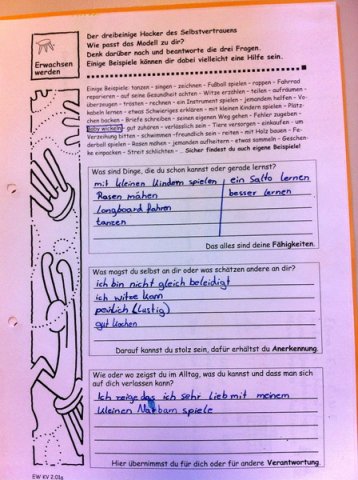 Erwachsen
werden
Der dreibeinige Hocker des Selbstvertrauens
Wie passt das Modell zu dir?
Denk darüber nach und beantworte die drei Fragen.
Einige Beispiele können dir dabei vielleicht eine Hilfe sein.
Einige Beispiele: tanzen - singen - zeichnen - Fußball spielen - rappen - Fahrrad
reparieren - auf seine Gesundheit achten - Witze erzählen - teilen - aufräumen -
überzeugen - trösten - rechnen - ein Instrument spielen - jemandem helfen - Vo-
kabeln lernen - etwas Schwieriges erklären - mit kleinen Kindern spielen - Plätz-
chen backen - Briefe schreiben - seinen eigenen Weg gehen - Fehler zugeben -
Baby wickeln - gut zuhören - verlässlich sein - Tiere versorgen - einkaufen - um
Verzeihung bitten - schwimmen - freundlich sein - reiten - mit Holz bauen - Fe-
derball spielen - Rasen mähen - jemanden aufheitern - etwas sammeln - Geschen-
ke einpacken - Streit schlichten - ... Sicher findest du auch eigene Beispiele!
Was sind Dinge, die du schon kannst oder gerade lernst?
mit kleinen Kindern spielen ein Salto lernen
Rasen mähen besser lernen
Longboard fahren
tanzen
Das alles sind deine Fähigkeiten.
Was magst du selbst an dir oder was schätzen andere an dir?
ich bin nicht gleich beleidigt
ich witze kann
(Lustig)
gut kochen
Darauf kannst du stolz sein, dafür erhältst du Anerkennung.
Wie oder wo zeigst du im Alltag, was du kannst und dass man sich
auf dich verlassen kann?
Ich zeige das ich sehr Lieb mit meinem
kleinen spiele
Hier übernimmst du für dich oder für andere Verantwortung.
EW KV 2.01a